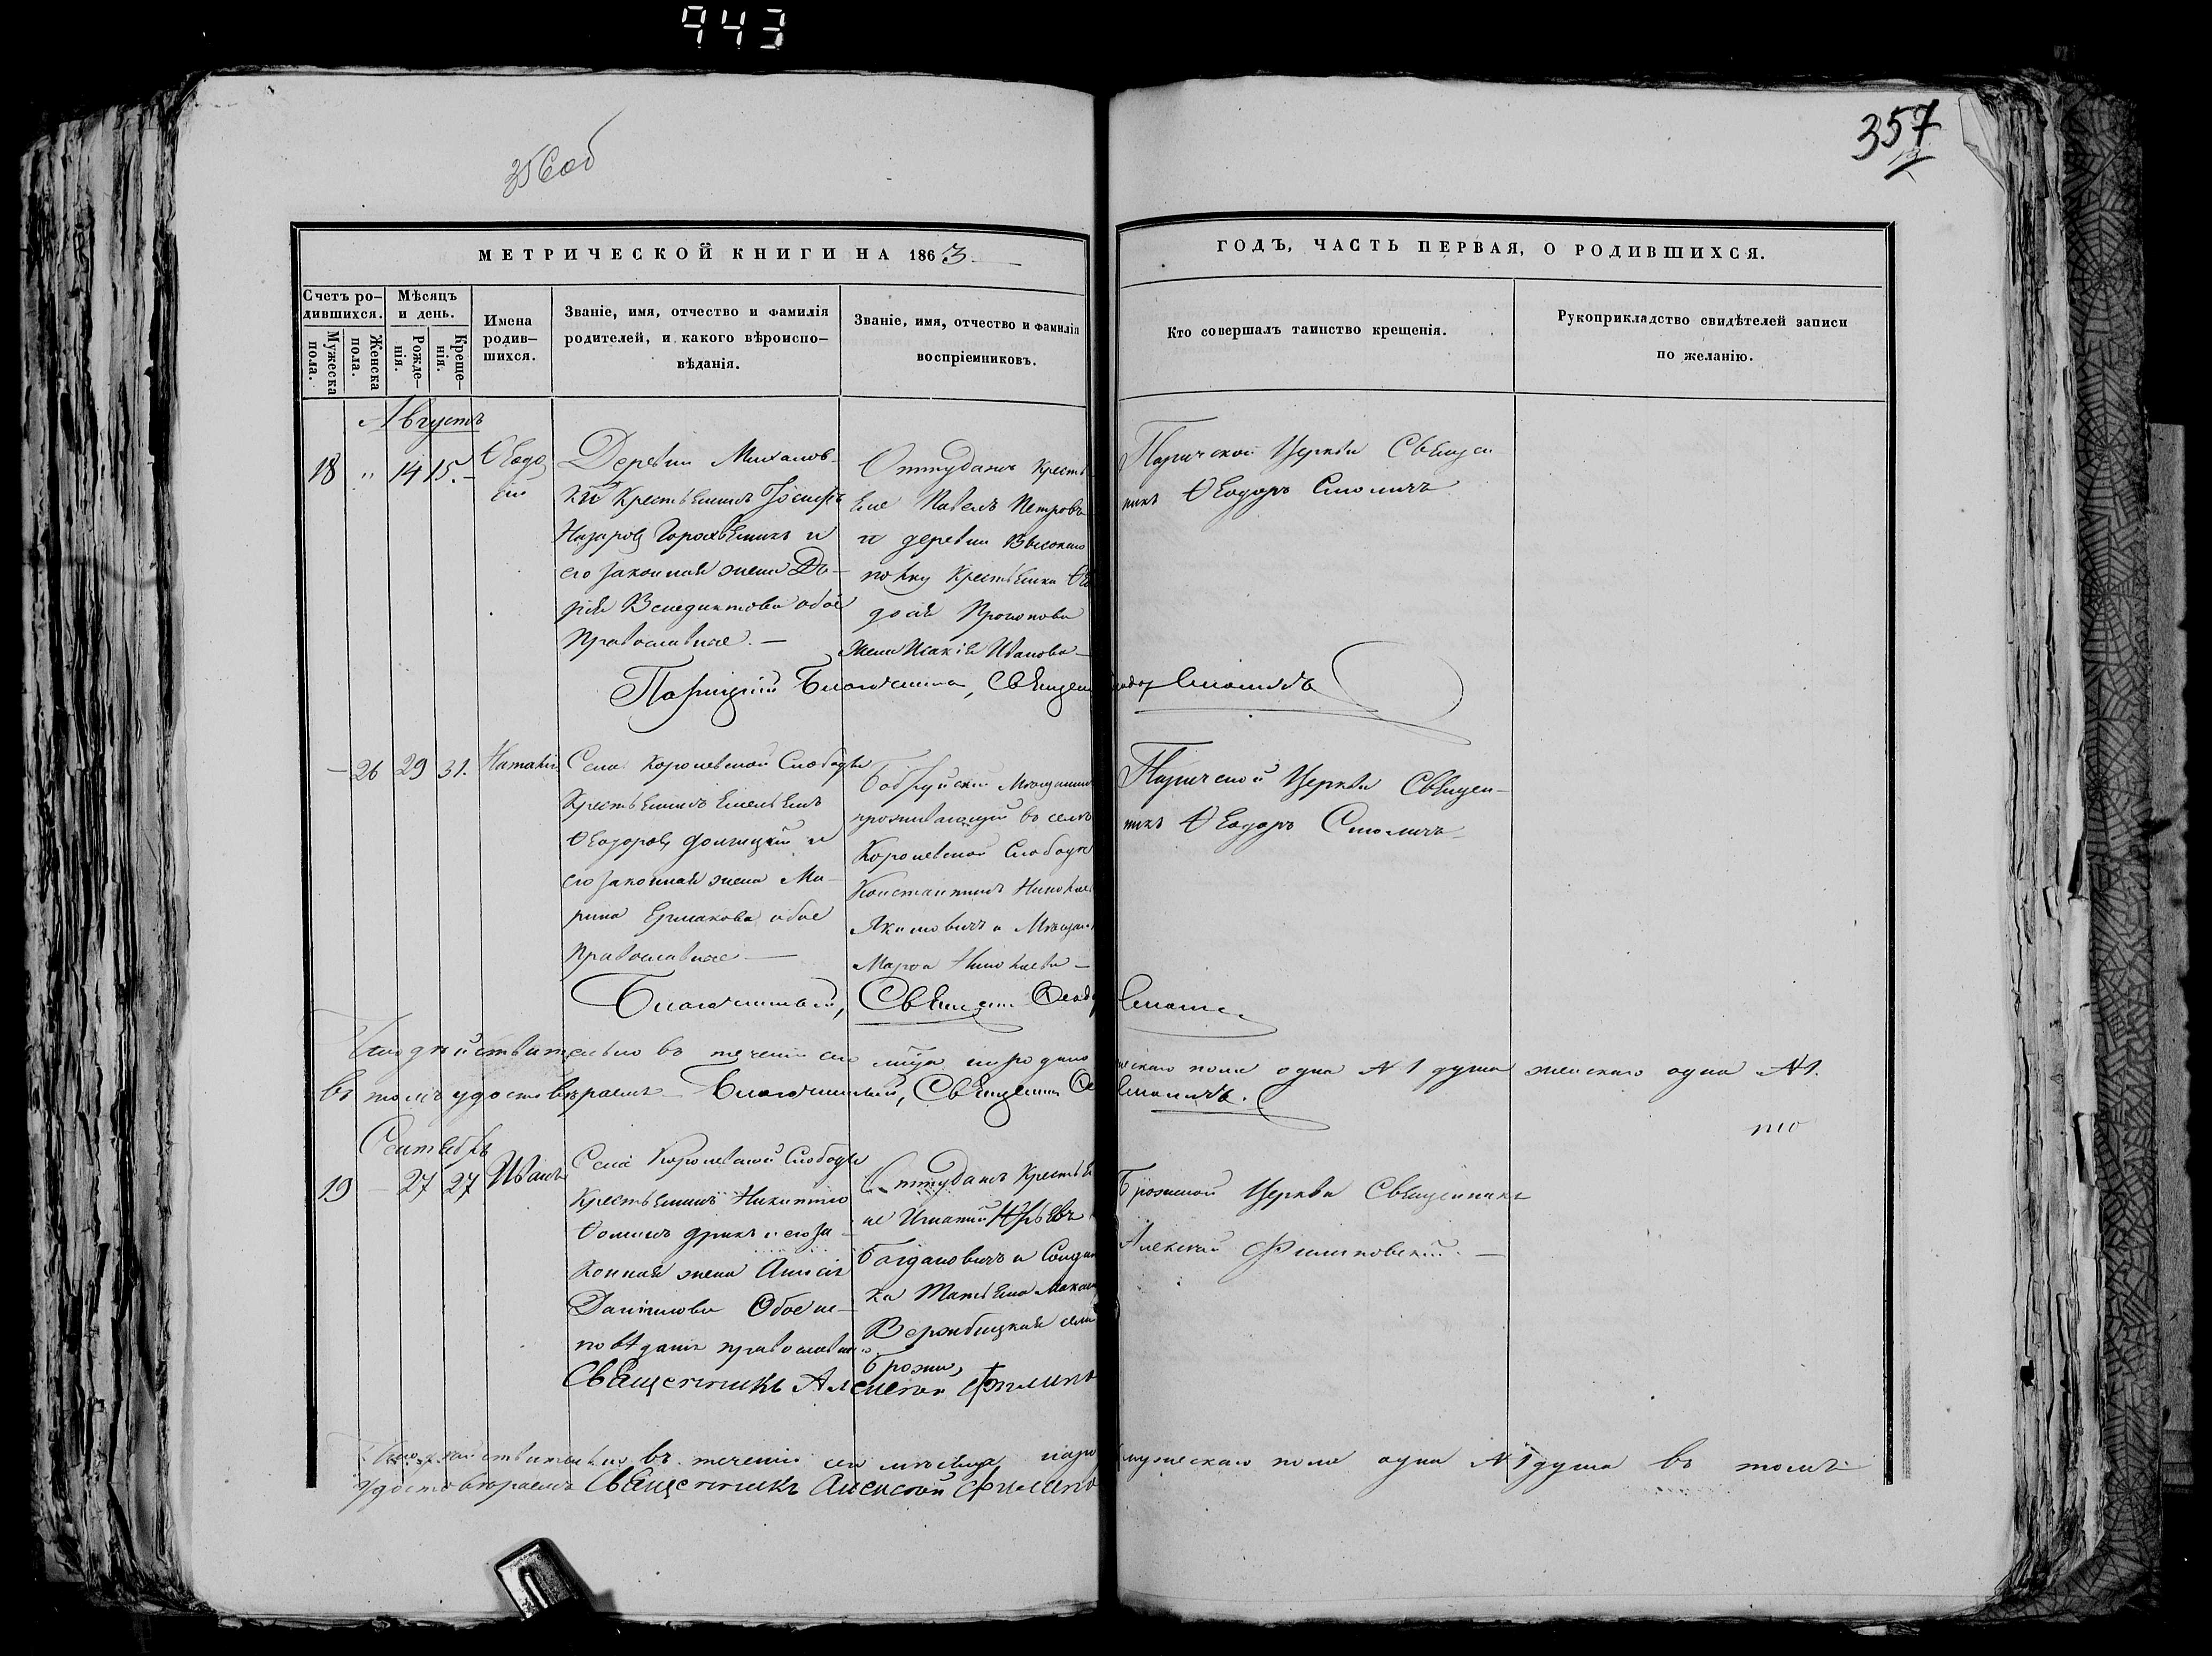 943
356 об
357
МЕТРИЧЕСКОЙ КНИГИ НА 1863
ГОДЪ, ЧАСТЬ ПЕРВАЯ, О РОДИВШИХСЯ.
Счетъ ро-
дившихся.
Мужеска
пола.
Женска
пола.
Мѣсяцъ
и день.
Рожде-
нія.
Креще-
нія.
Имена
родив-
шихся.
Званіе, имя, отчество и фамилія
родителей, и какого вѣроиспо-
вѣданія.
Званіе, имя, отчество и фамилія
воспріемниковъ.
Кто совершалъ таинство крещенія.
Рукоприкладство свидѣтелей записи
по желанію.
Августъ
18 " 14 15.
Деревни Михалов-
ки Крестьянинъ Іосифъ
Назаровъ и
его законная жена Да-
рія Венедиктова обое
Православные. —
Оттуданъ Кресть
яне Павелъ Петровъ
и деревни
Крестьянка
досія Прокопова
жена Исакія Иванова —
Паричской Церкви Священ
никъ Ѳеодоръ Смоличъ
Благочинный, Священ
Смоличъ
— 26 29 31. Наталія
Села Королевской Слободы
Крестьянинъ Емельянъ
Ѳеодоровъ и
его законная жена Ма-
рина Ермакова обое
Православные —
Бобруйскій Мѣщанинъ
проживающій въ селѣ
Королевской Слободѣ
Константинъ Николае
Якимовичъ и Мѣщан
Марѳа Николаева —
Паричской Церкви Священ-
никъ Ѳеодоръ Смоличъ
Благочинный, Священ Ѳеодо
Смолич
Что дѣйствительно въ теченіи сего мѣсяца
ческаго пола одна № 1 душа женскаго одна № 1.
въ томъ удостовѣряемъ Благочинный, Священникъ Ѳе
Смоличъ.
Сентябрь
19 — 27 27 Иванъ
Села Королевской Слободы
Крестьянинъ
Ѳоминъ и его за-
конная жена Анисія
Даніилова Обое ис-
повѣданія православн
Оттуданъ Крестья
не Игнатій Юрьевъ
Богдановичъ и Солдат
ка Татьяна
Вержбицкая села
Брожи,
Брожской Церкви Священникъ
Алексѣй Филиповскій. —
Священникъ Алексѣй Филипо
Что дѣйствительно въ теченіи сего мѣсяца
мужескаго пола одна № 1 душа въ томъ
удостовѣряемъ Священникъ Алексѣй Филипо